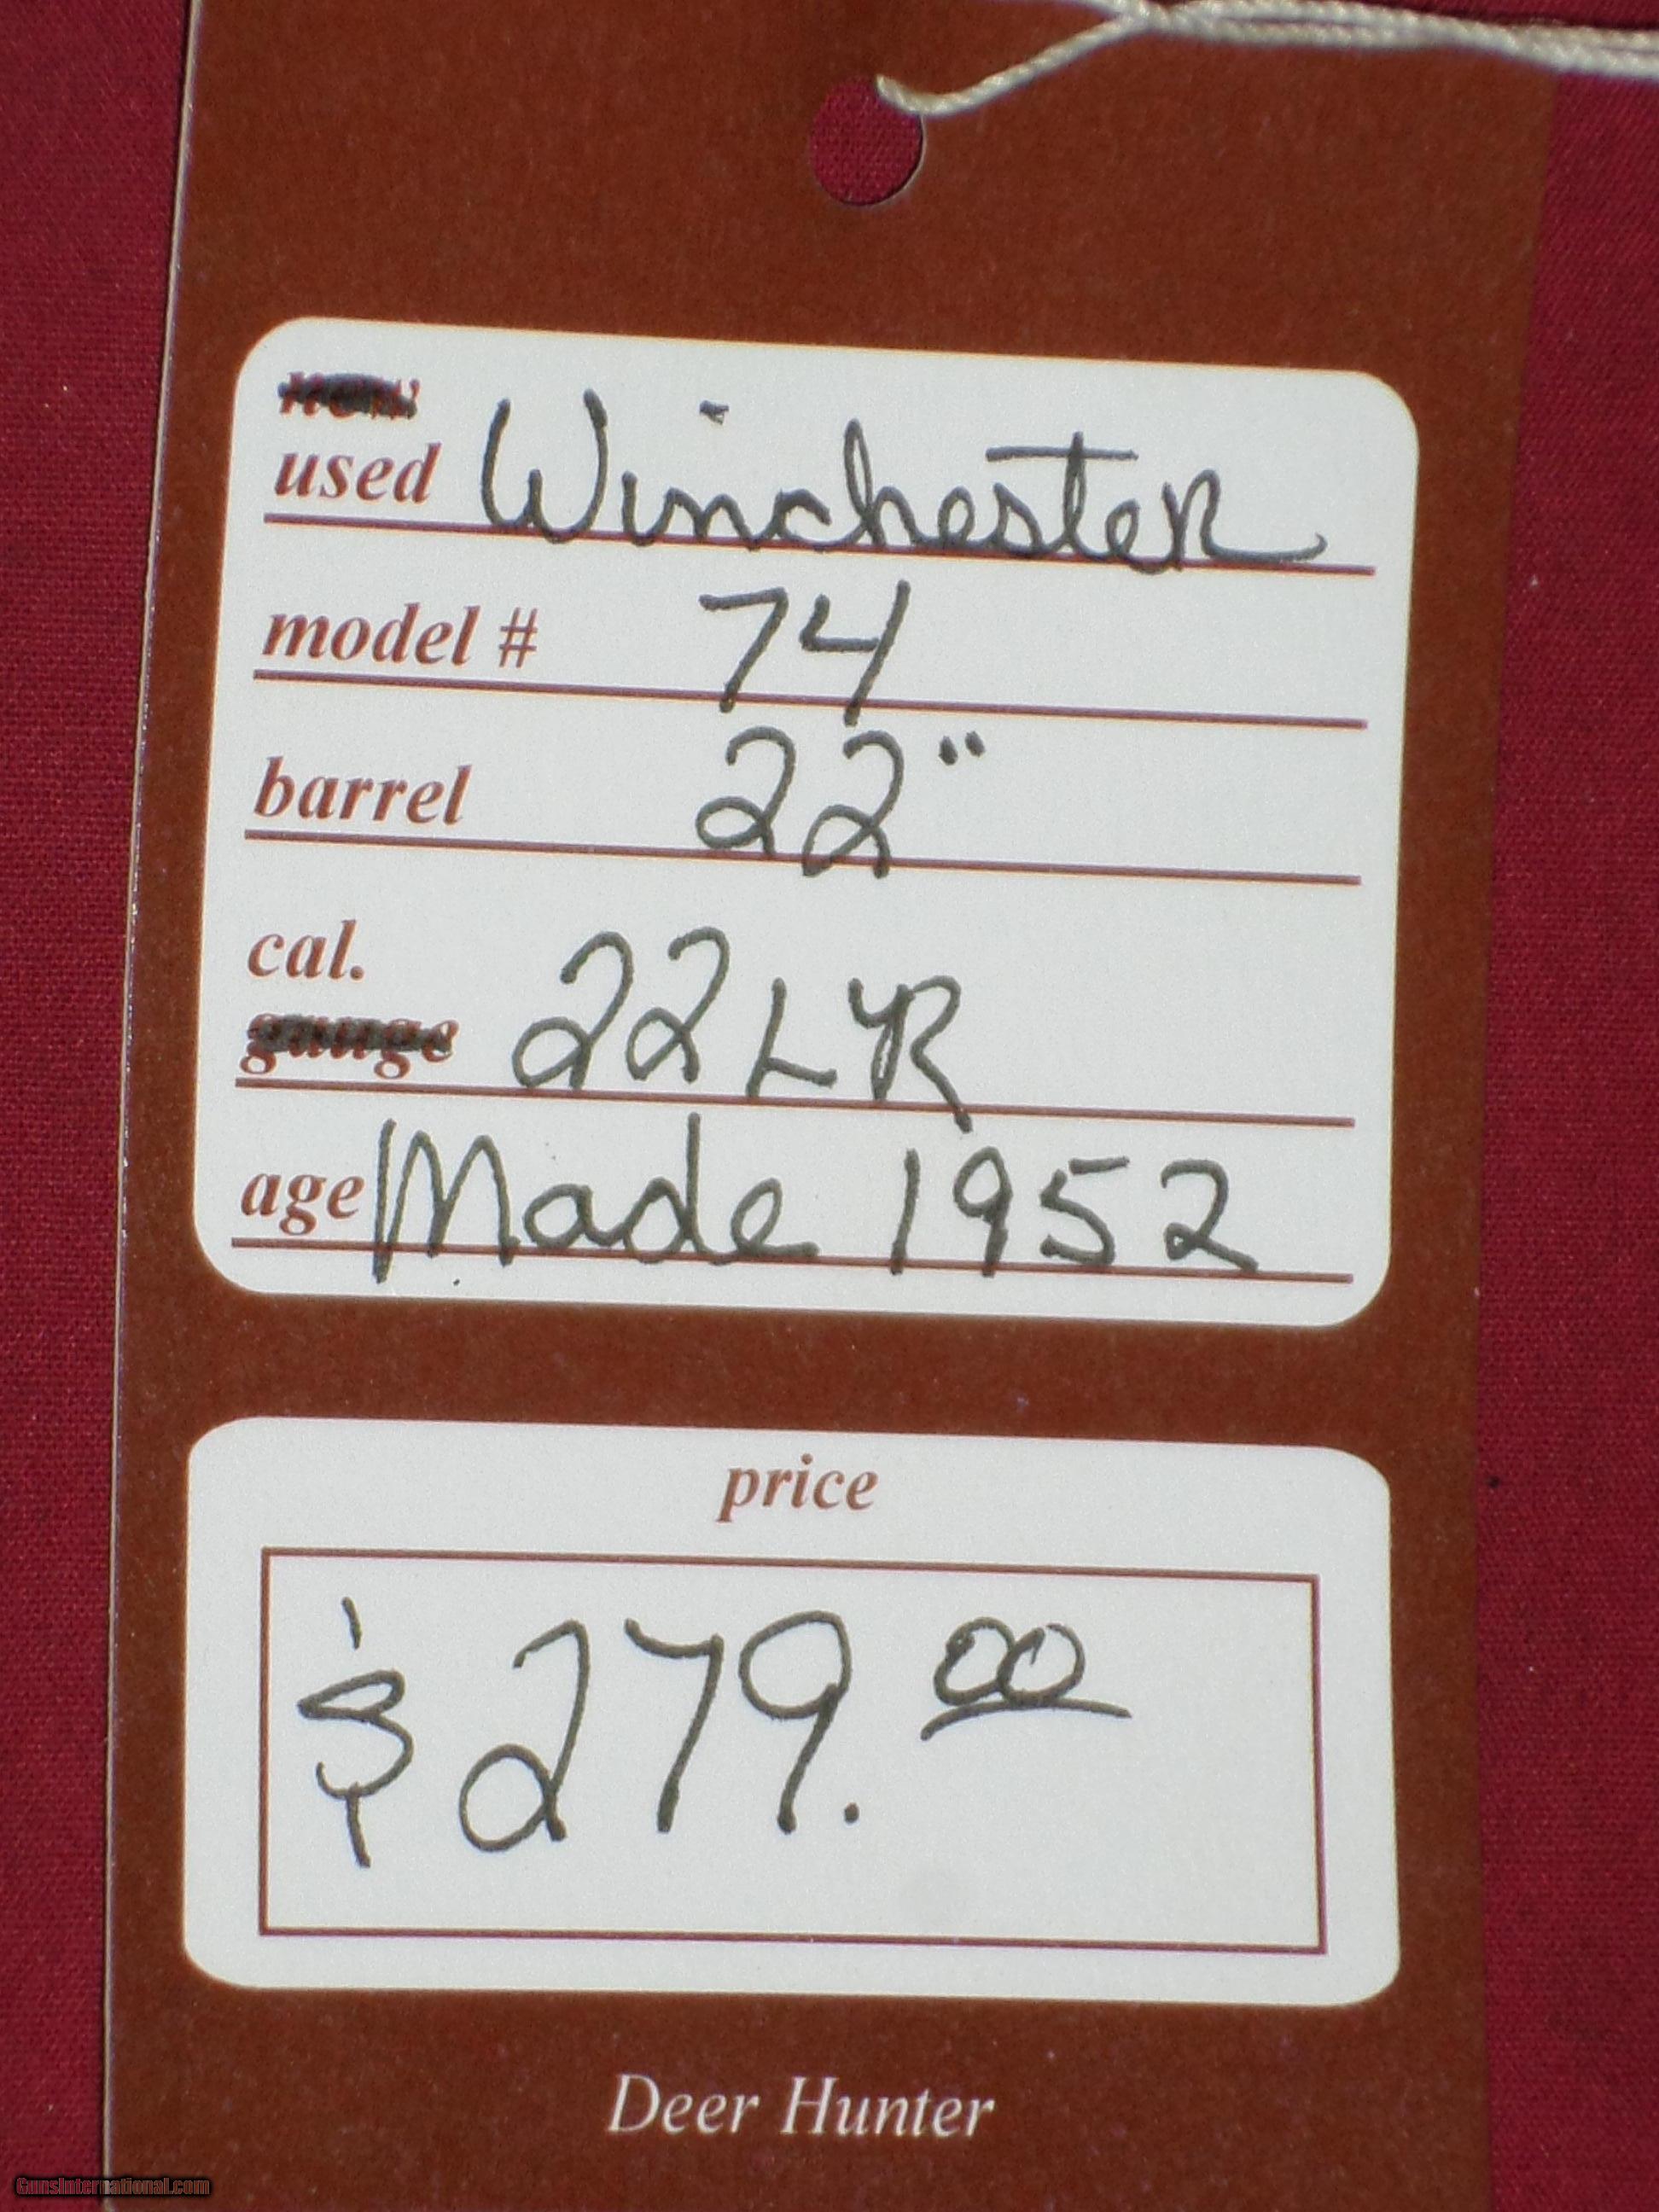 new
used Winchester
model # 74
barrel 22"
cal.
gauge 22 LR
age Made 1952
price
$279.00
Deer Hunter
GunsInternational.com